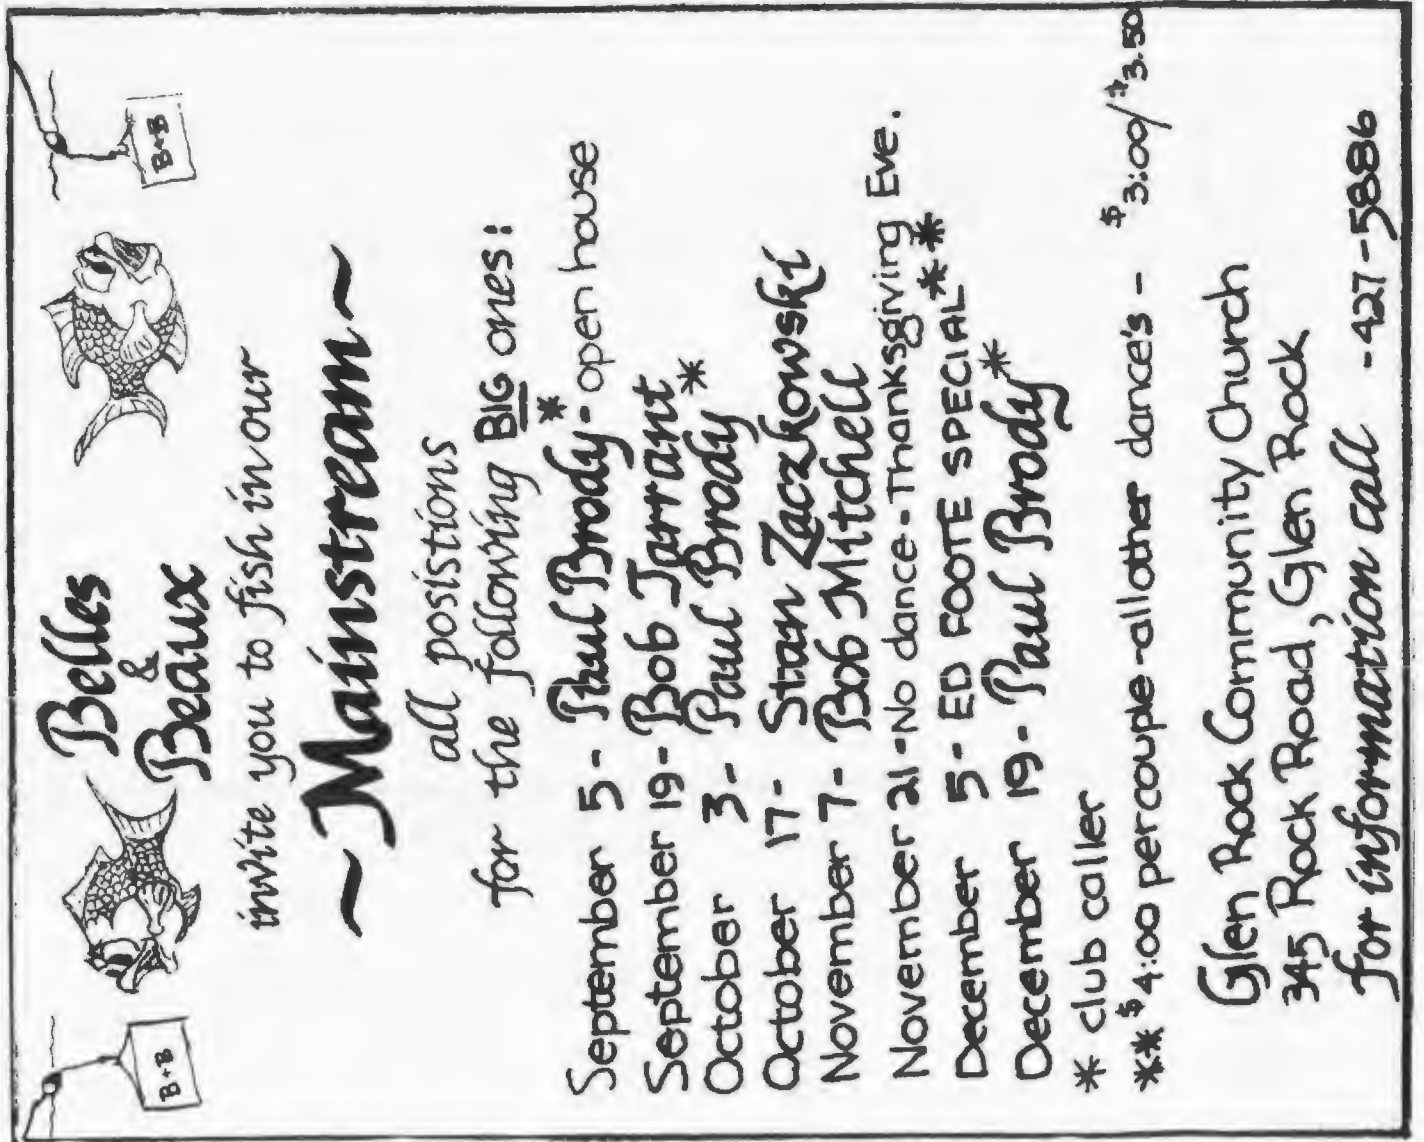 B+B
B+B
Belles
&
Beaux
invite you to fish in our
~Mainstream~
all posistions
for the following BIG ones:
September 5 - Paul Brody* - open house
September 19 - Bob Tarrant
October 3 - Paul Brody*
October 17 - Stan Zaczkowski
November 7 - Bob Mitchell
November 21 - No dance - Thanksgiving Eve.
December 5 - ED FOOTE SPECIAL**
December 19 - Paul Brody*
* club caller
** $4:00 per couple - all other dance's - $3:00/$3.50
Glen Rock Community Church
345 Rock Road, Glen Rock
for information call - 427-5886